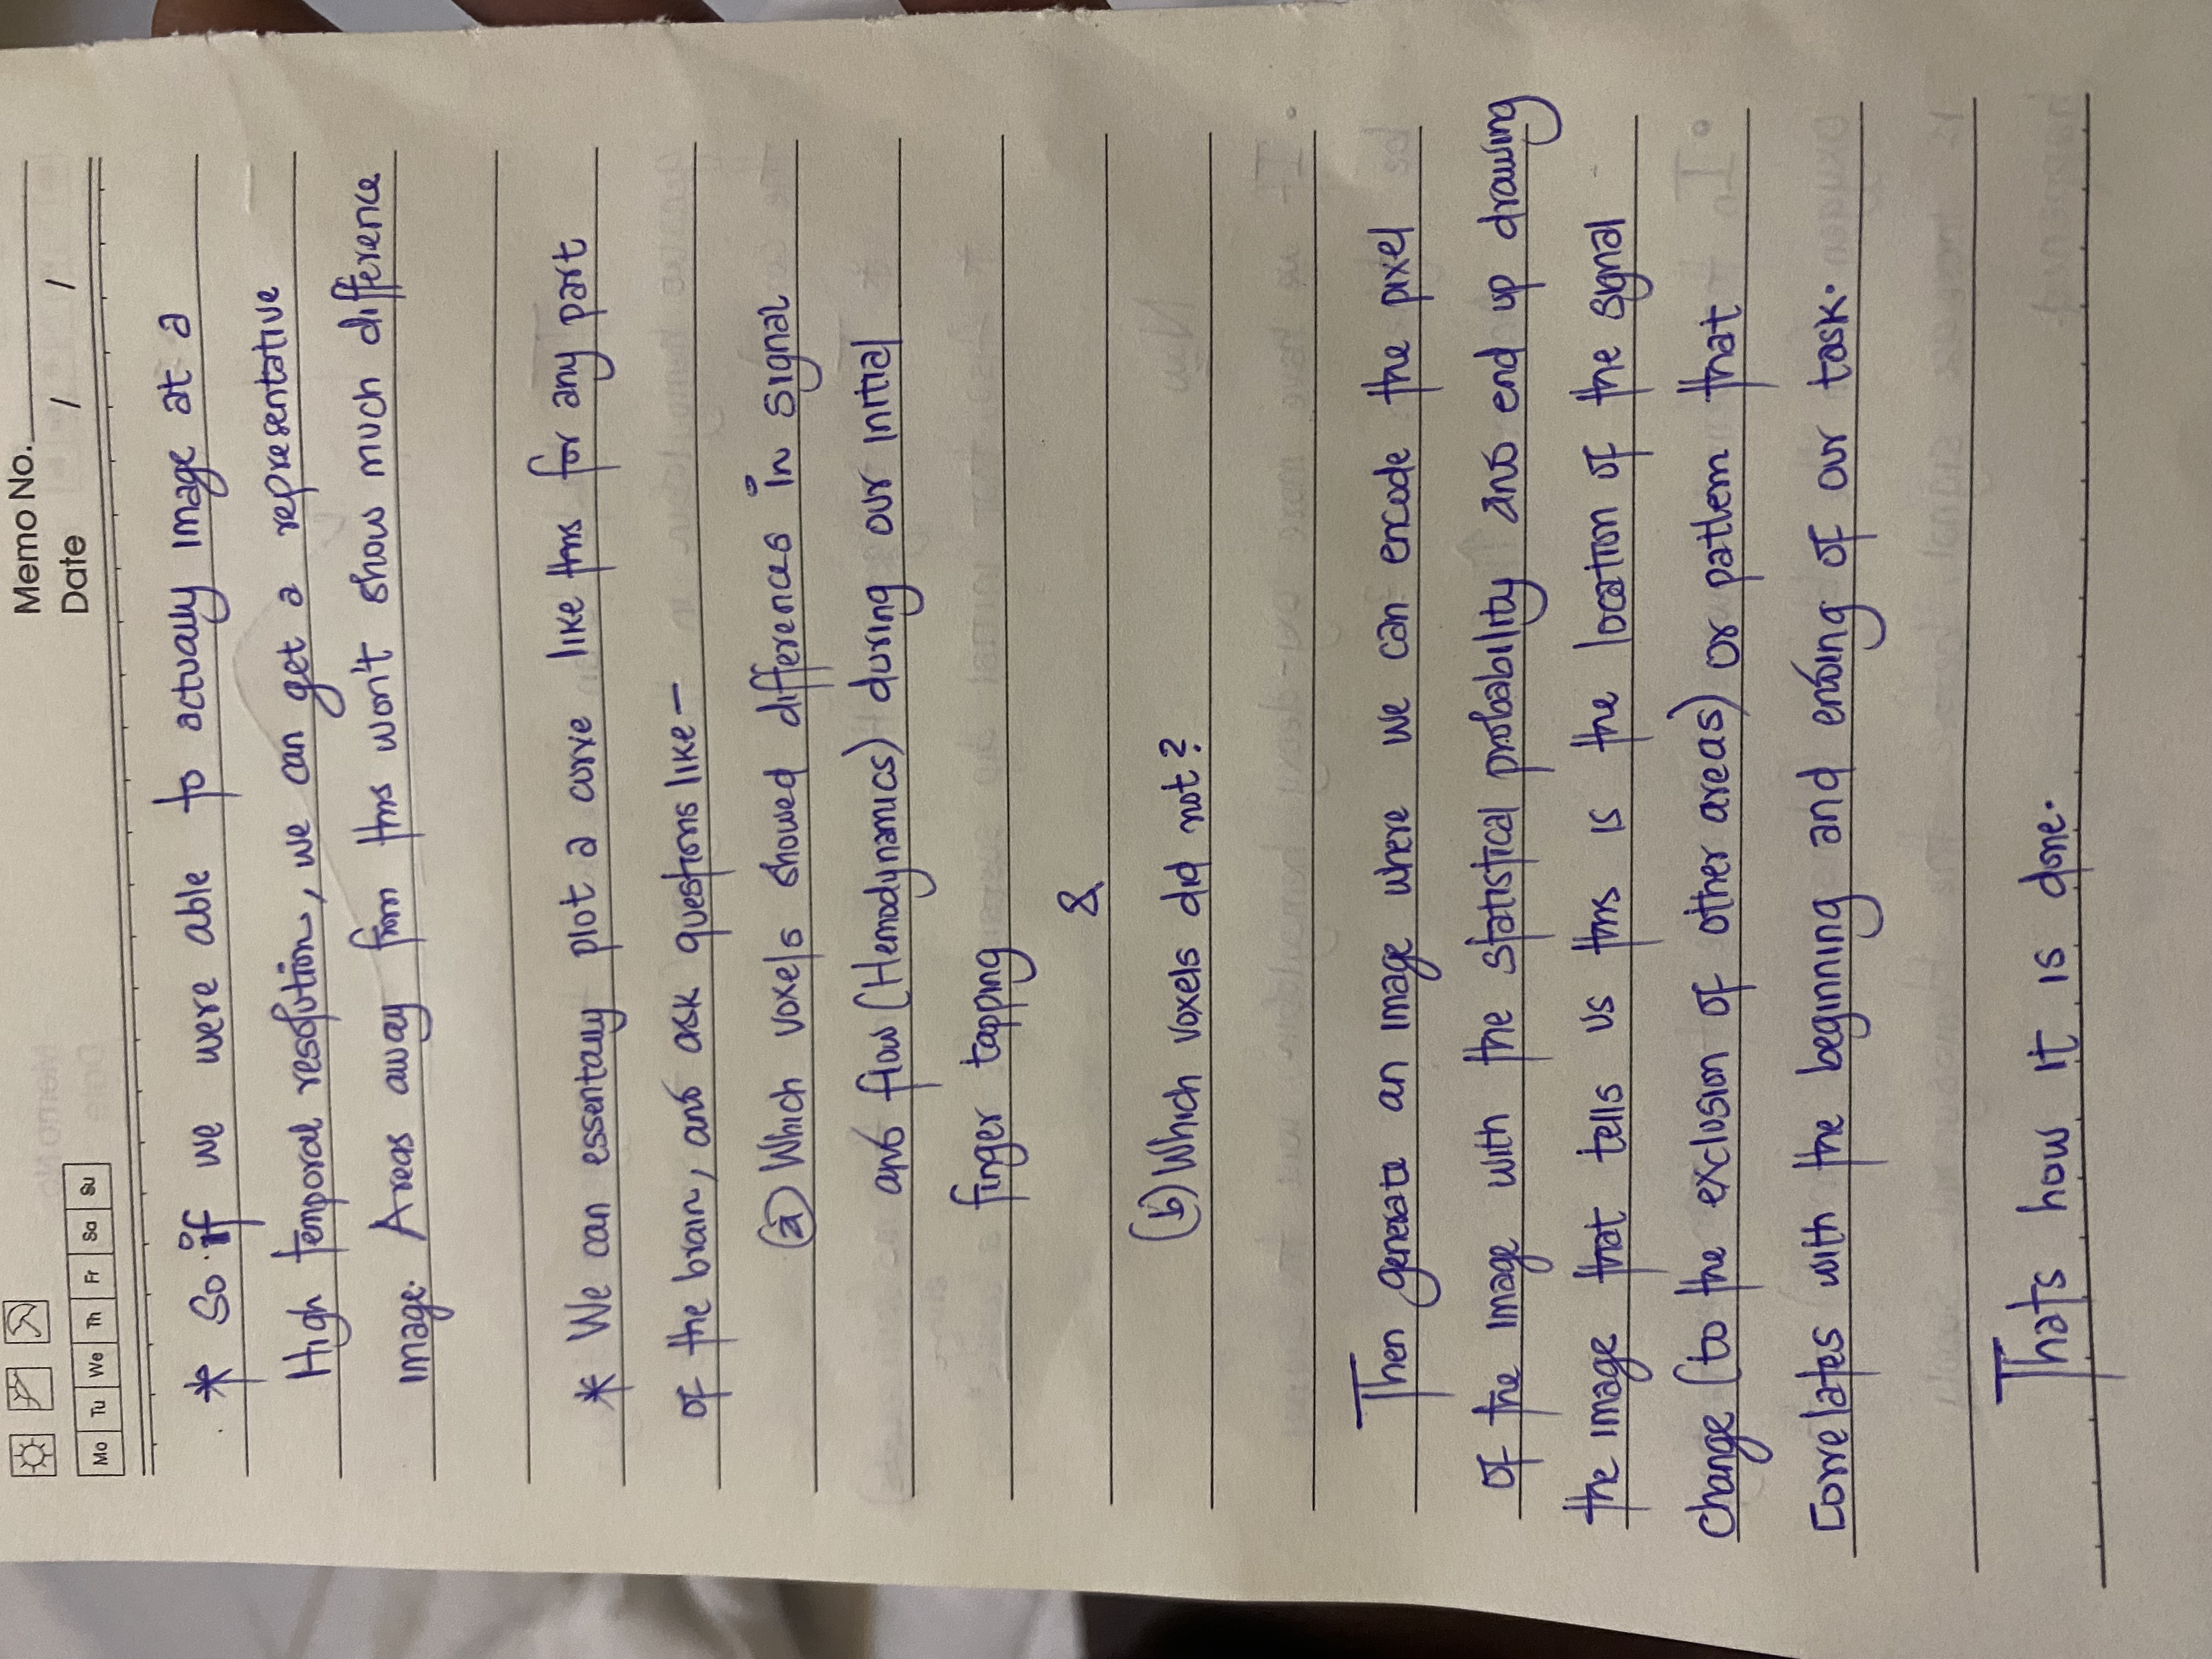 Memo No.
Date / /
Mo Tu We Th Fr Sa Su
* So if we were able to actually image at a
High temporal resolution, we can get a representative
image. Areas away from this won't show much difference
* We can essentially plot a curve like this for any part
of the brain, and ask questions like –
(a) Which voxels showed differences in signal
and flow (Hemodynamics) during our initial
finger tapping
&
(b) Which voxels did not?
Then generate an image where we can encode the pixel
of the image with the statistical probability and end up drawing
the image that tells us this is the location of the signal
change (to the exclusion of other areas) or pattern that
correlates with the beginning and ending of our task.
Thats how it is done.